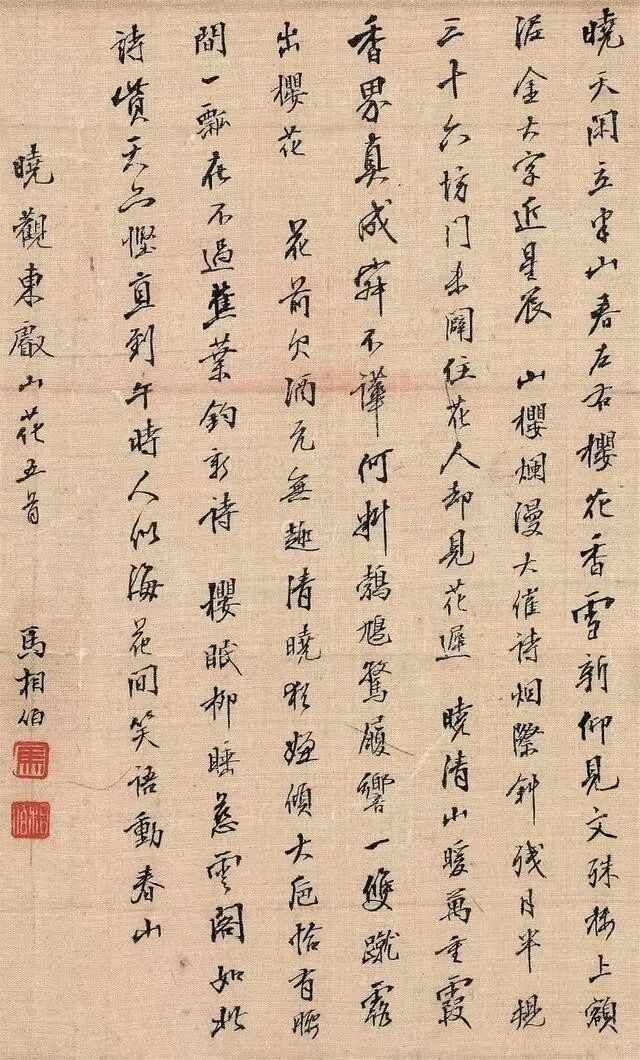 曉天閑立半山春左右櫻花香雪新仰見文殊樓上額
泥金大字近星辰 山櫻爛漫大催詩烟際斜殘月半規
三十六坊門未闢住花人却見花遲 曉清山暖萬重霞
香界真成寂不譁何料鵓鳩驚履響一雙蹴露
出櫻花 花前欠酒元無趣清曉猶嫌傾大巵恰有腰
間一瓢在不過蕉葉釣新詩 櫻眠柳睡慈雲閣如此
詩賞天亦慳直到午時人似海花間笑語動春山
曉觀東叡山花五首 馬相伯
馬
相伯